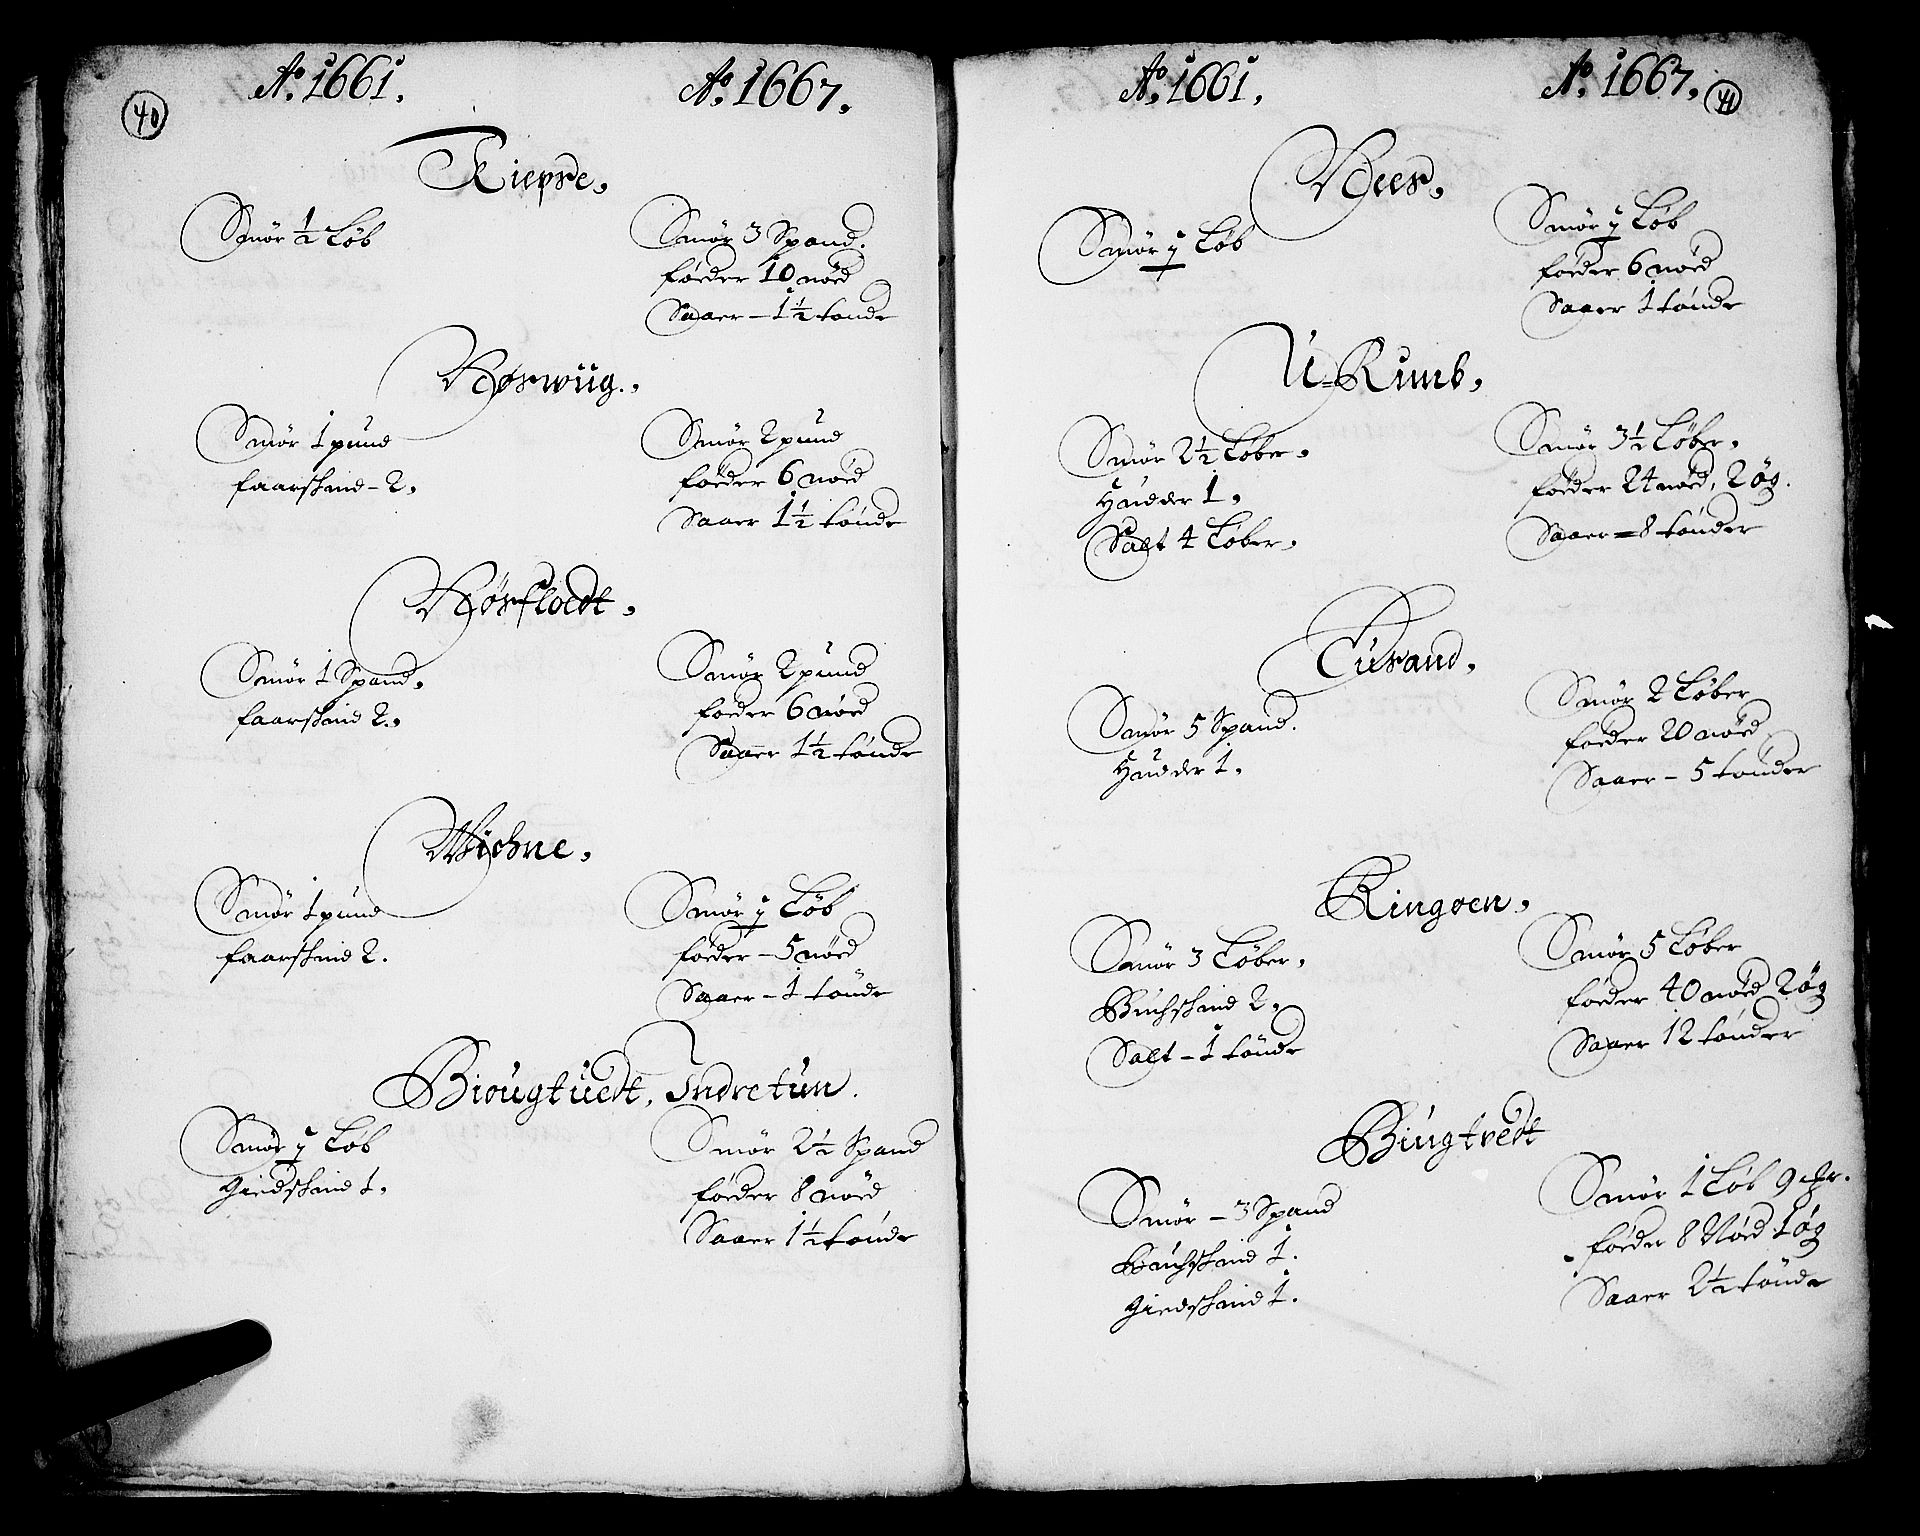 40
Ao. 1661.
Ao. 1667.
Kiepse.
Smör ½ Löb
Smör 3 Spand.
föeder 10 nöed
Saaer - 1½ tönde
Nörwiig.
Smör 1 pund
faarskind - 2.
Smör 2 pund
föeder 6 nöed
Saaer 1½ tönde
Nörflodt.
Smör 1 Spand.
faarskind 2.
Smör 2 pund
föeder 6 nöed
Saaer 1½ tönde
Wichne.
Smör 1 pund
faarskind 2.
Smör ½ Löb
föeder - 5 nöed
Saaer - 1 tönde
Biougtuedt, Indretun.
Smör ½ Löb
Giedskind 1.
Smör 2½ Spand
föeder 8 nöed
Saaer 1½ tönde
Ao. 1661.
Ao. 1667.
41
Nees.
Smör ½ Löb
Smör ½ Löb
föeder 6 nöed
Saaer 1 tönde
Smör 2½ Löber.
Huder 1.
Salt 4 Löber.
Smör 3½ Löber.
föeder 24 nöed, 2 ög.
Saaer = 8 tönder
Smör 5 Spand.
Huder 1.
Smör 2 Löber
föeder 20 nöed
Saaer - 5 tönder
Ringöen.
Smör 3 Löber.
Buchskind 2.
Salt - 1 tönde
Smör 5 Löber
föeder 40 nöed 2 ög
Saaer 12 tönder
Biugtvedt
Smör - 3 Spand
Buchskind 1.
Giedskind 1.
Smör 1 Löb 9
föeder 8 Nöed 1 ög
Saaer 2½ tönde